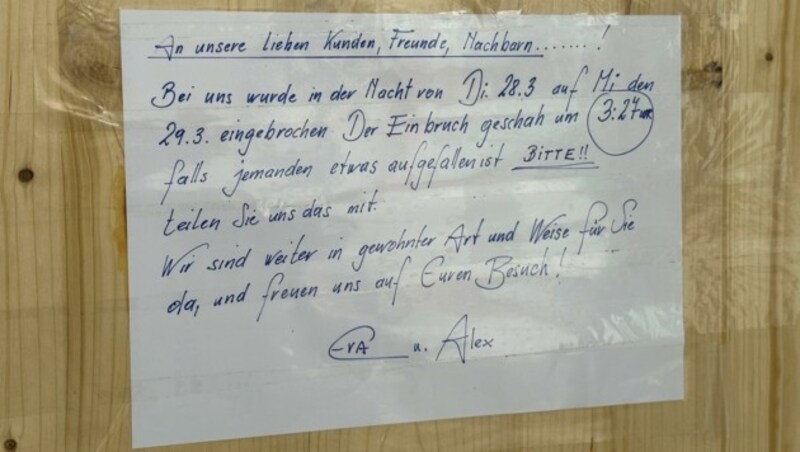 An unsere lieben Kunden, Freunde, Nachbarn.......!
Bei uns wurde in der Nacht von Di. 28.3 auf Mi den
29.3. eingebrochen Der Einbruch geschah um 3:27
falls jemanden etwas aufgefallen ist BITTE!!
teilen Sie uns das mit.
Wir sind weiter in gewohnter Art und Weise für Sie
da, und freuen uns auf Euren Besuch!
u. Alex